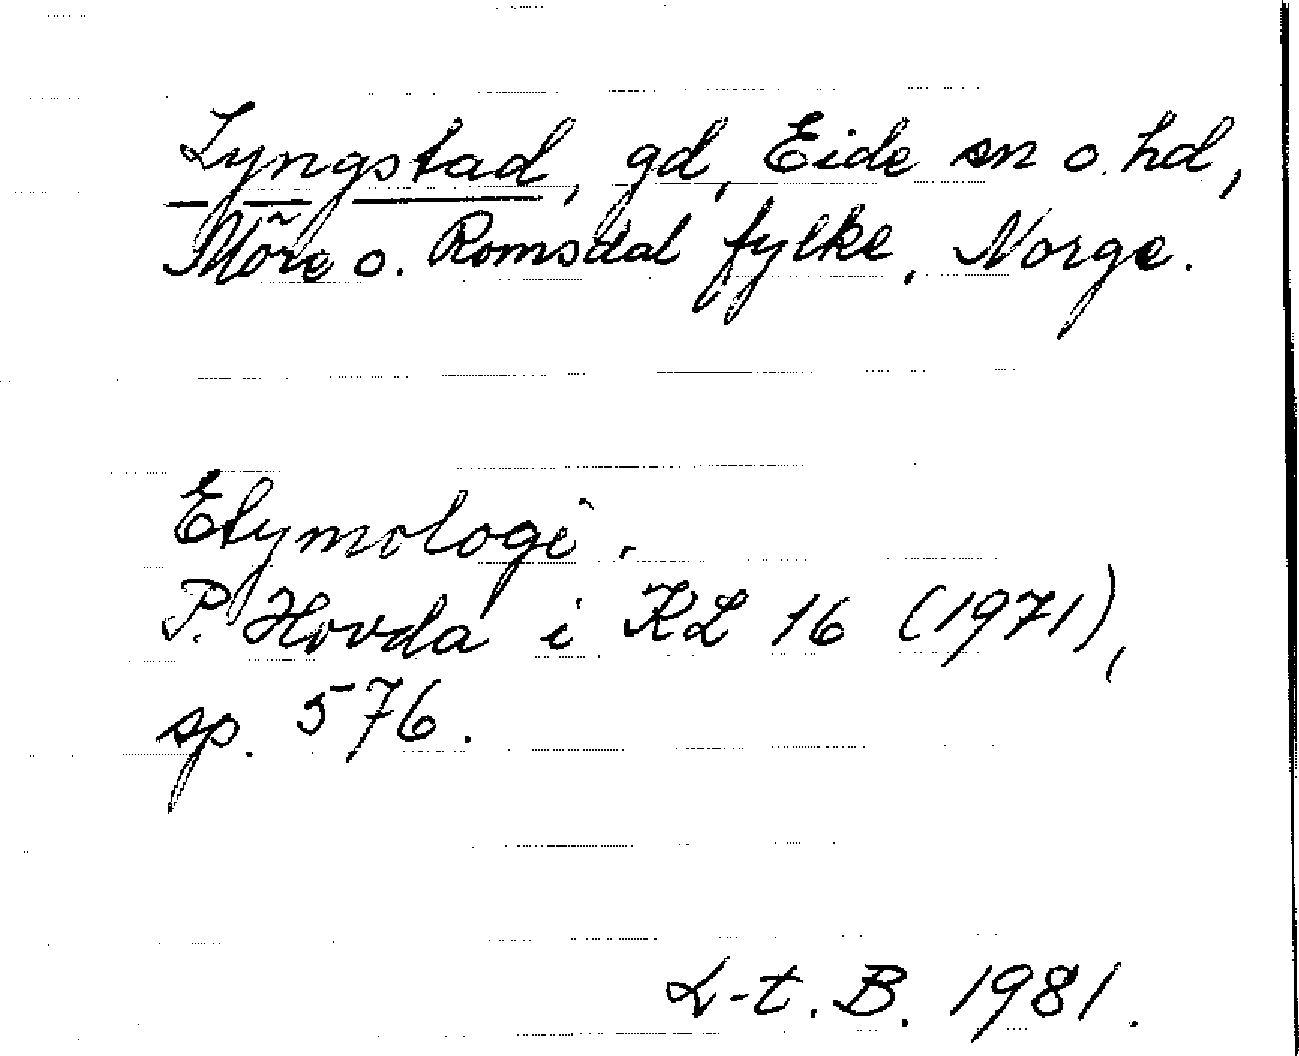 Lyngstad, gd, Eide sn o. hd,
Möre o. Romsdal fylke, Norge.
Etymologi.
P. Hovda i KL 16 (1971),
sp. 576.
L-t. B. 1981.